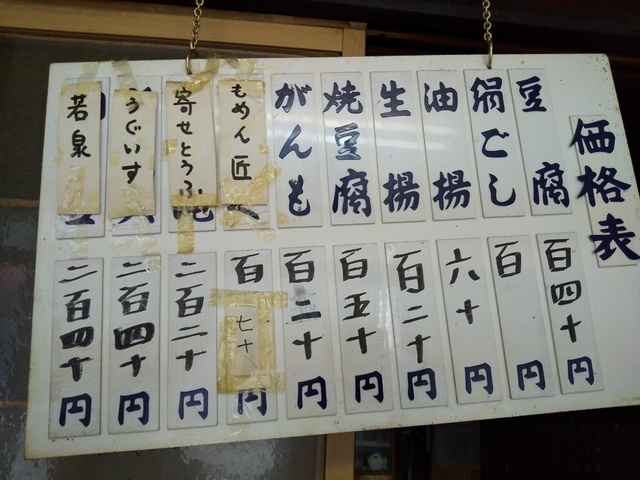 価格表
豆腐
百四十円
絹ごし
百円
油揚
六十円
生揚
百二十円
焼豆腐
百五十円
がんも
百二十円
もめん匠
百七十円
寄せとうふ
二百二十円
うぐいす
二百四十円
若泉
二百四十円